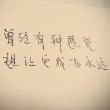 曾经有种感觉
想让它成为永远